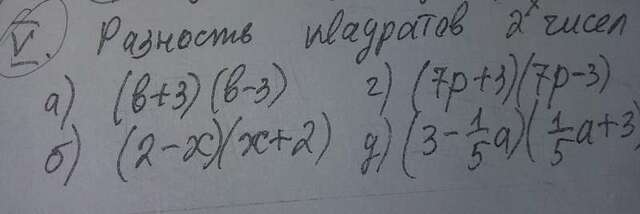 V. Разность квадратов 2ˣ чисел
а) (в+3)(в-3) г) (7р+3)(7р-3)
б) (2-х)(х+2) д) (3-1/5a)(1/5a+3)